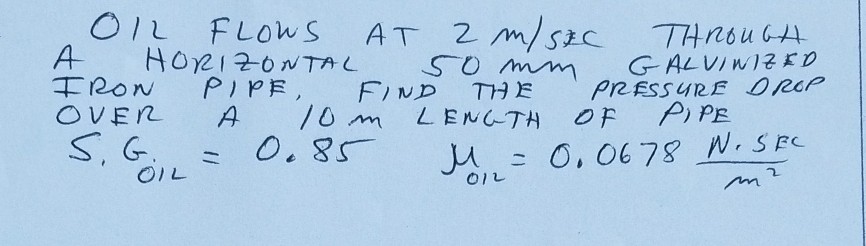 OIL FLOWS AT 2 m/SEC THROUGH
A HORIZONTAL 50 mm GALVINIZED
IRON PIPE, FIND THE PRESSURE DROP
OVER A 10 m LENGTH OF PIPE
S.G. OIL = 0.85 μ OIL = 0.0678 N.SEC/m²